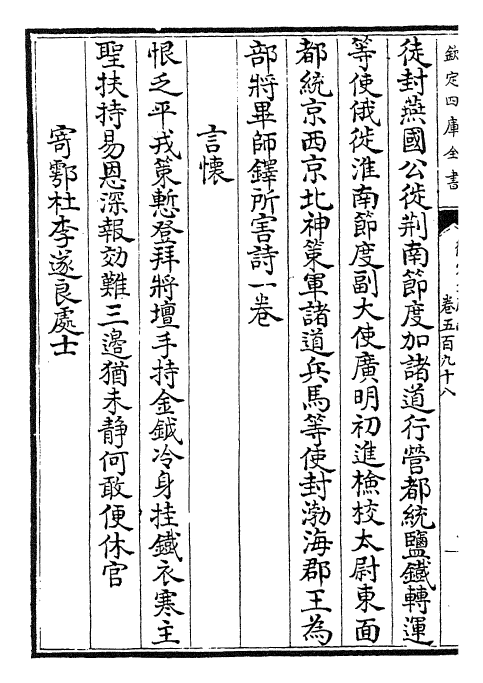 欽定四庫全書
卷五百九十八
徒封燕國公徙荆南節度加諸道行營都統鹽鐵轉運
等使俄徙淮南節度副大使廣明初進檢校太尉東面
都統京西京北神策軍諸道兵馬等使封渤海郡王為
部將畢師鐸所害詩一卷
言懷
恨乏平戎策慙登拜將壇手持金鉞冷身挂鐵衣寒主
聖扶持易恩深報効難三邊猶未静何敢便休官
寄鄠杜李遂良處士